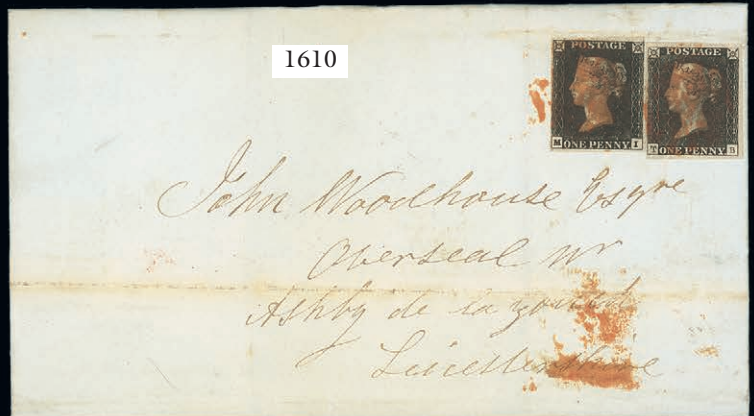 1610
POSTAGE POSTAGE
M I T B
ONE PENNY ONE PENNY
John Woodhouse Esqre
Overseal Nr
Ashby de la Zouch
Leicestershire